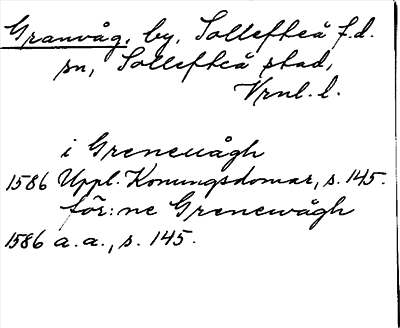 Granvåg, by, Sollefteå f.d.
sn, Sollefteå stad,
Vrnl. l.
i Grenewågh
1586 Uppl. Konungsdomar, s. 145.
för:ne Grenewågh
1586 a.a., s. 145.